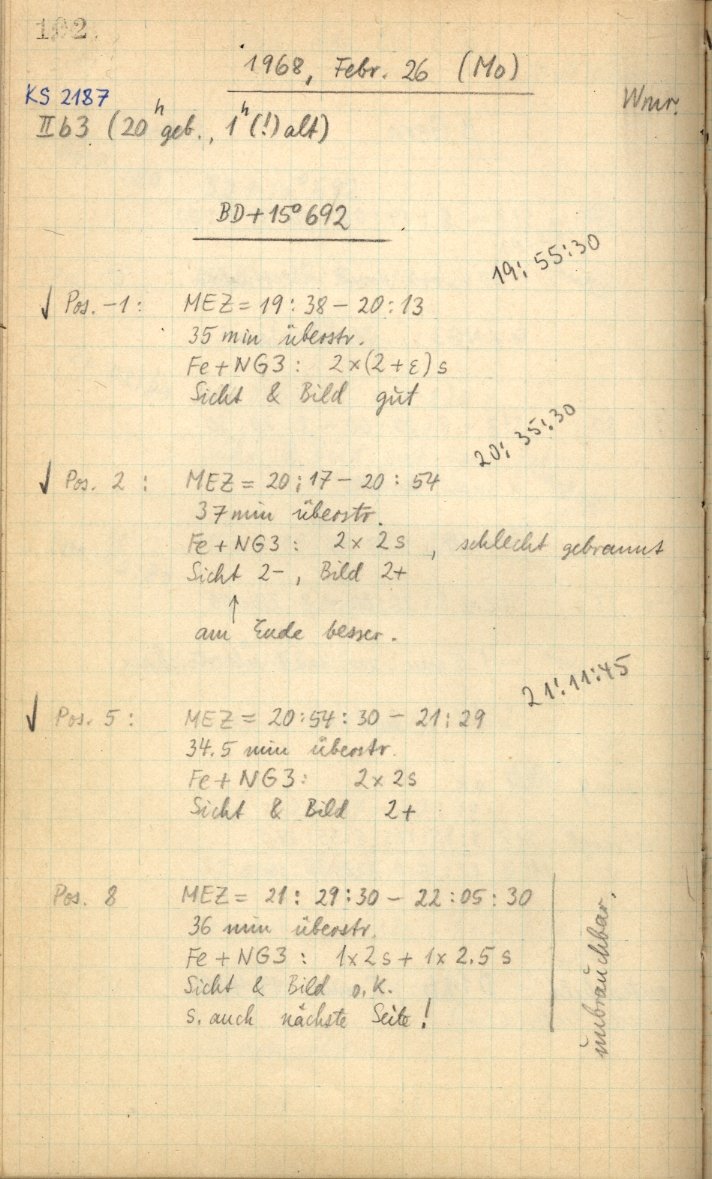 102.
1968, Febr. 26 (Mo)
KS 2187
Wmr.
II b3 (20h geb., 1h(!) alt)
BD+15° 692
19:55:30
√ Pos. -1: MEZ = 19:38 - 20:13
35 min überstr.
Fe+NG3: 2×(2+ε)s
Sicht & Bild gut
20:35:30
√ Pos. 2: MEZ = 20:17 - 20:54
37 min überstr.
Fe+NG3: 2×2s, schlecht gebrannt
Sicht 2-, Bild 2+
↑
am Ende besser.
21:11:45
√ Pos. 5: MEZ = 20:54:30 - 21:29
34.5 min überstr.
Fe+NG3: 2×2s
Sicht & Bild 2+
Pos. 8 MEZ = 21:29:30 - 22:05:30
36 min überstr.
Fe+NG3: 1×2s + 1×2.5s
Sicht & Bild o.K.
s. auch nächste Seite!
unbrauchbar.